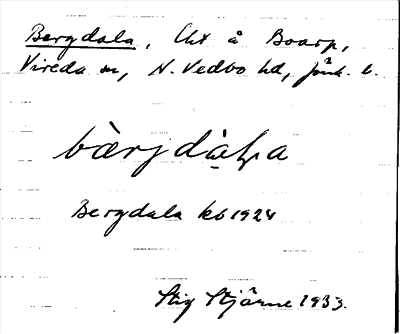 Bergdala, Lht å Boarp,
Vireda sn, N. Vedbo hd, Jönk. l.
bàrjdàɬa
Bergdala kb 1924
Stig Stjärne 1933.